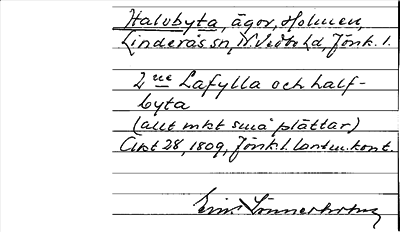 Halvbyta, ägor, Holmen,
Linderås sn, N. Vedbo hd, Jönk. l.
2 ne Lafylla och half-
byta
(allt mkt små plättar)
Akt 28, 1809, Jönk. l. lantm. kont.